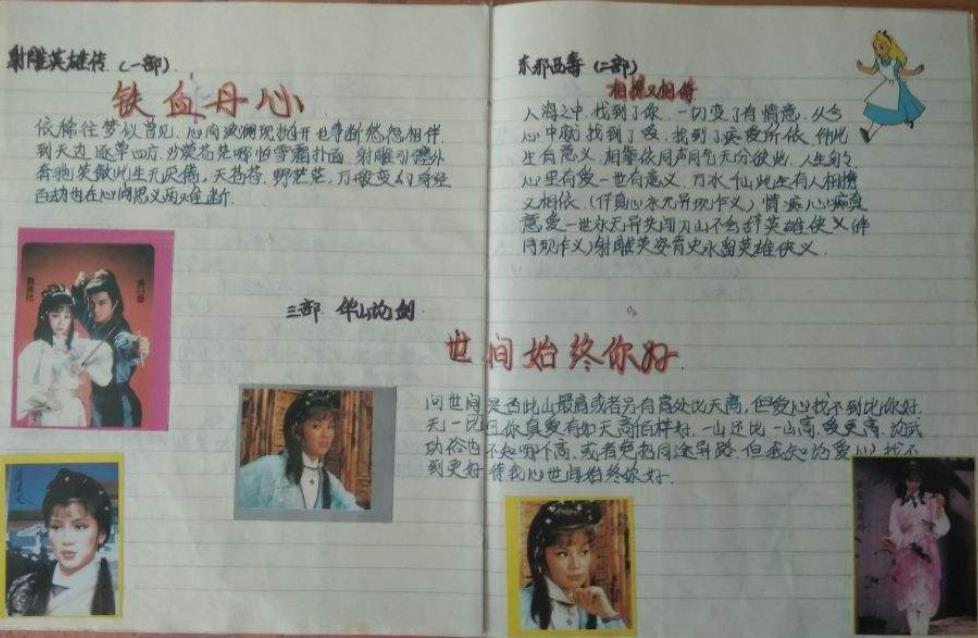 射雕英雄传.(一部).
铁血丹心
依稀往梦似曾见,心内波澜现抛开世事断愁怨相伴
到天边 逐草四方,沙漠苍茫哪怕雪霜扑面,射雕引弓塞外
奔驰笑傲此生无厌倦,天苍苍,野茫茫,万般变幻身经
百劫也在心间恩义两难断.
东邪西毒(二部)
相携又相倚
人海之中,找到了你,一切变了有情意,从今
心中就找到了爱,找到了痴爱所依,
生有意义,相攀依同声同气无分彼此,人生
心里有爱一世有意义,万水 山此生有人相携
又相依.(仟真心永无异现作义)情痴心
意爱一世永无异共闯刀山不会辞英雄侠义(
同现作义)射雕英姿青史永留英雄侠义.
三部 华山论剑.
世间始终你好.
问世间是否此山最高或者另有高处比天高,但爱心找不到比你好.
无一比 你真爱有如天高百样好.一山还比一山高,爱更高,论武
功俗世不知哪个高,或者绝招同途异路,但我知论爱心找不
到更好待我心世间始终你好.